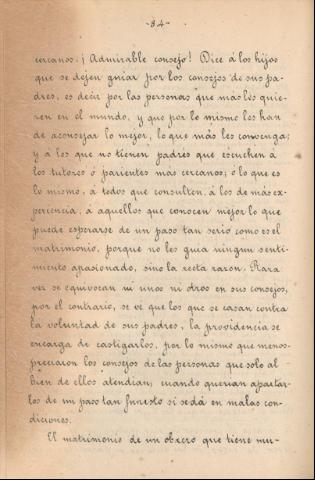 -84-
cercanos. ¡Admirable consejo! Dice á los hijos
que se dejen guiar por los consejos de sus pa-
dres, es decir por las personas que más les quie-
ren en el mundo, y que por lo mismo les han
de aconsejar lo mejor, lo que más les convenga;
y á los que no tienen padres que escuchen á
los tutores ó parientes más cercanos; ó lo que es
lo mismo, á todos que consulten á los de más ex-
periencia, á aquellos que conocen mejor lo que
puede esperarse de un paso tan serio como es el
matrimonio, porque no les guia ningun senti-
miento apasionado, sino la recta razon. Rara
vez se equivocan ni unos ni otros en sus consejos,
por el contrario, se vé que los que se casan contra
la voluntad de sus padres, la providencia se
encarga de castigarlos, por lo mismo que menos-
preciaron los consejos de las personas que solo al
bien de ellos atendian, cuando querian apartar-
los de un paso tan funesto si se dá en malas con-
diciones.
El matrimonio de un obrero que tiene mu-